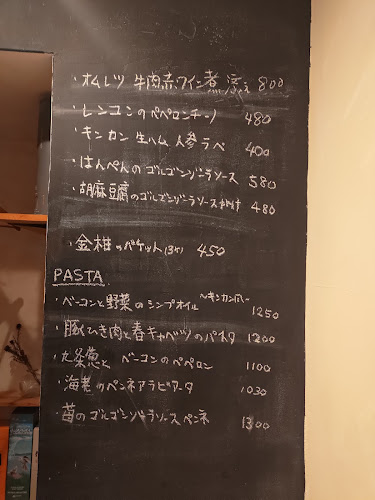 ・オムレツ 牛肉赤ワイン煮添え 800
・レンコンのペペロンチーノ 480
・キンカン生ハム人参ラペ 400
・はんぺんのゴルゴンゾーラソース 580
・胡麻豆腐のゴルゴンゾーラソースがけ 480
・金柑の 450
PASTA
・ベーコンと野菜のシンプルオイル 〜キンカン風〜 1250
・豚ひき肉と春キャベツのパスタ 1200
・九条葱と ベーコンのペペロン 1100
・海老のペンネアラビアータ 1030
・苺のゴルゴンゾーラソースペンネ 1300